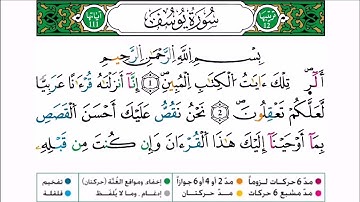 سُورَةُ يُوسُفَ
بِسْمِ اللَّهِ الرَّحْمَٰنِ الرَّحِيمِ
الٓر ۚ تِلْكَ ءَايَٰتُ ٱلْكِتَٰبِ ٱلْمُبِينِ ١ إِنَّآ أَنزَلْنَٰهُ قُرْءَٰنًا عَرَبِيًّا
لَّعَلَّكُمْ تَعْقِلُونَ ٢ نَحْنُ نَقُصُّ عَلَيْكَ أَحْسَنَ ٱلْقَصَصِ
بِمَآ أَوْحَيْنَآ إِلَيْكَ هَٰذَا ٱلْقُرْءَانَ وَإِن كُنتَ مِن قَبْلِهِۦ
مدّ 6 حركات لزوماً مدّ 2 أو 4 أو 6 جوازاً إخفاء ومواقع الغنّة (حركتان) تفخيم
مدّ مشبع 6 حركات مدّ حركتان إدغام، وما لا يُلفظ قلقلة